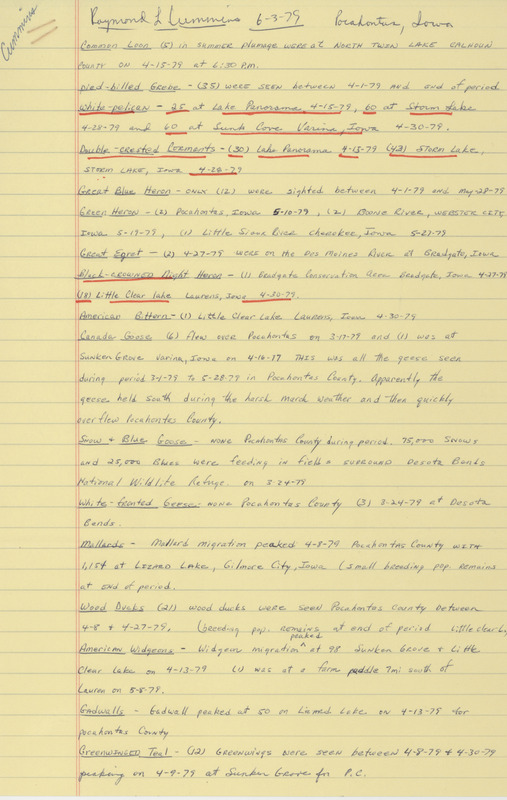 Cummins
Raymond L Cummins 6-3-79 Pocahontas, Iowa
Common Loon (5) in summer plumage were at North Twin Lake Calhoun
County on 4-15-79 at 6:30 P.M.
pied-billed Grebe - (35) were seen between 4-1-79 and end of period
White-pelican - 25 at Lake Panorama 4-15-79, 60 at Storm Lake
4-28-79 and 60 at Sunk Cove Varina, Iowa 4-30-79.
Double-crested Corments - (30) Lake Panorama 4-15-79 (42) Storm Lake,
Storm Lake, Iowa 4-28-79
Great Blue Heron - only (12) were sighted between 4-1-79 and May-28-79
Green Heron - (2) Pocahontas, Iowa 5-10-79, (2) Boone River, Webster City,
Iowa 5-19-79, (1) Little Sioux River Cherokee, Iowa 5-27-79
Great Egret - (2) 4-27-79 were on the Des Moines River at Bradgate, Iowa
Black-crowned Night Heron - (1) Bradgate Conservation Area Bradgate, Iowa 4-27-79
(18) Little Clear lake Laurens, Iowa 4-30-79.
American Bittern - (1) Little Clear Lake Laurens, Iowa 4-30-79
Canada Goose (6) flew over Pocahontas on 3-17-79 and (1) was at
Sunken Grove Varina, Iowa on 4-16-17 This was all the geese seen
during period 3-1-79 to 5-28-79 in Pocahontas County. Apparently the
geese held south during the harsh march weather and then quickly
overflew Pocahontas County.
Snow & Blue Goose - none Pocahontas County during period. 75,000 Snows
and 25,000 Blues were feeding in fields surround Desota Bends
National Wildlife Refuge. on 3-24-79
White-fronted Geese - none Pocahontas County (3) 3-24-79 at Desota
Bends.
Mallards - Mallard migration peaked 4-8-79 Pocahontas County with
1,154 at Lizard Lake, Gilmore City, Iowa (small breeding pop. remains
at end of period.
Wood Ducks (21) wood ducks were seen Pocahontas County between
4-8 & 4-27-79. (breeding pop. remains at end of period Little clear L,
American Widgeons - Widgeon migration ^peaked at 98 Sunken Grove & Little
Clear Lake on 4-13-79 (1) was at a farm puddle 7mi south of
Laurens on 5-8-79.
Gadwalls - Gadwall peaked at 50 on Lizard Lake on 4-13-79 for
pocahontas County
Greenwinged Teal - (12) Greenwings were seen between 4-8-79 & 4-30-79
peaking on 4-9-79 at Sunken Grove for P.C.